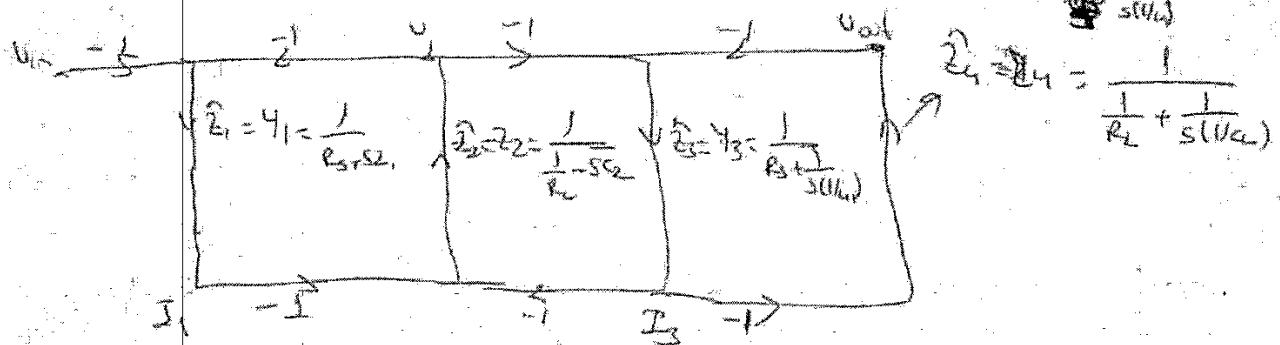 s(1/4)
Vin -1 -1 V1 -1 -1 Vout
Ẑ1 = Y1 = 1/(Rs+SL1
Ẑ2=Z2= 1/(1/RL - SC2)
Ẑ3=Y3= 1/(Rs+1/s(1/4))
Ẑ4 = Z4 = 1/(1/RL + 1/s(1/CL))
I1 -1 -1 I3 -1